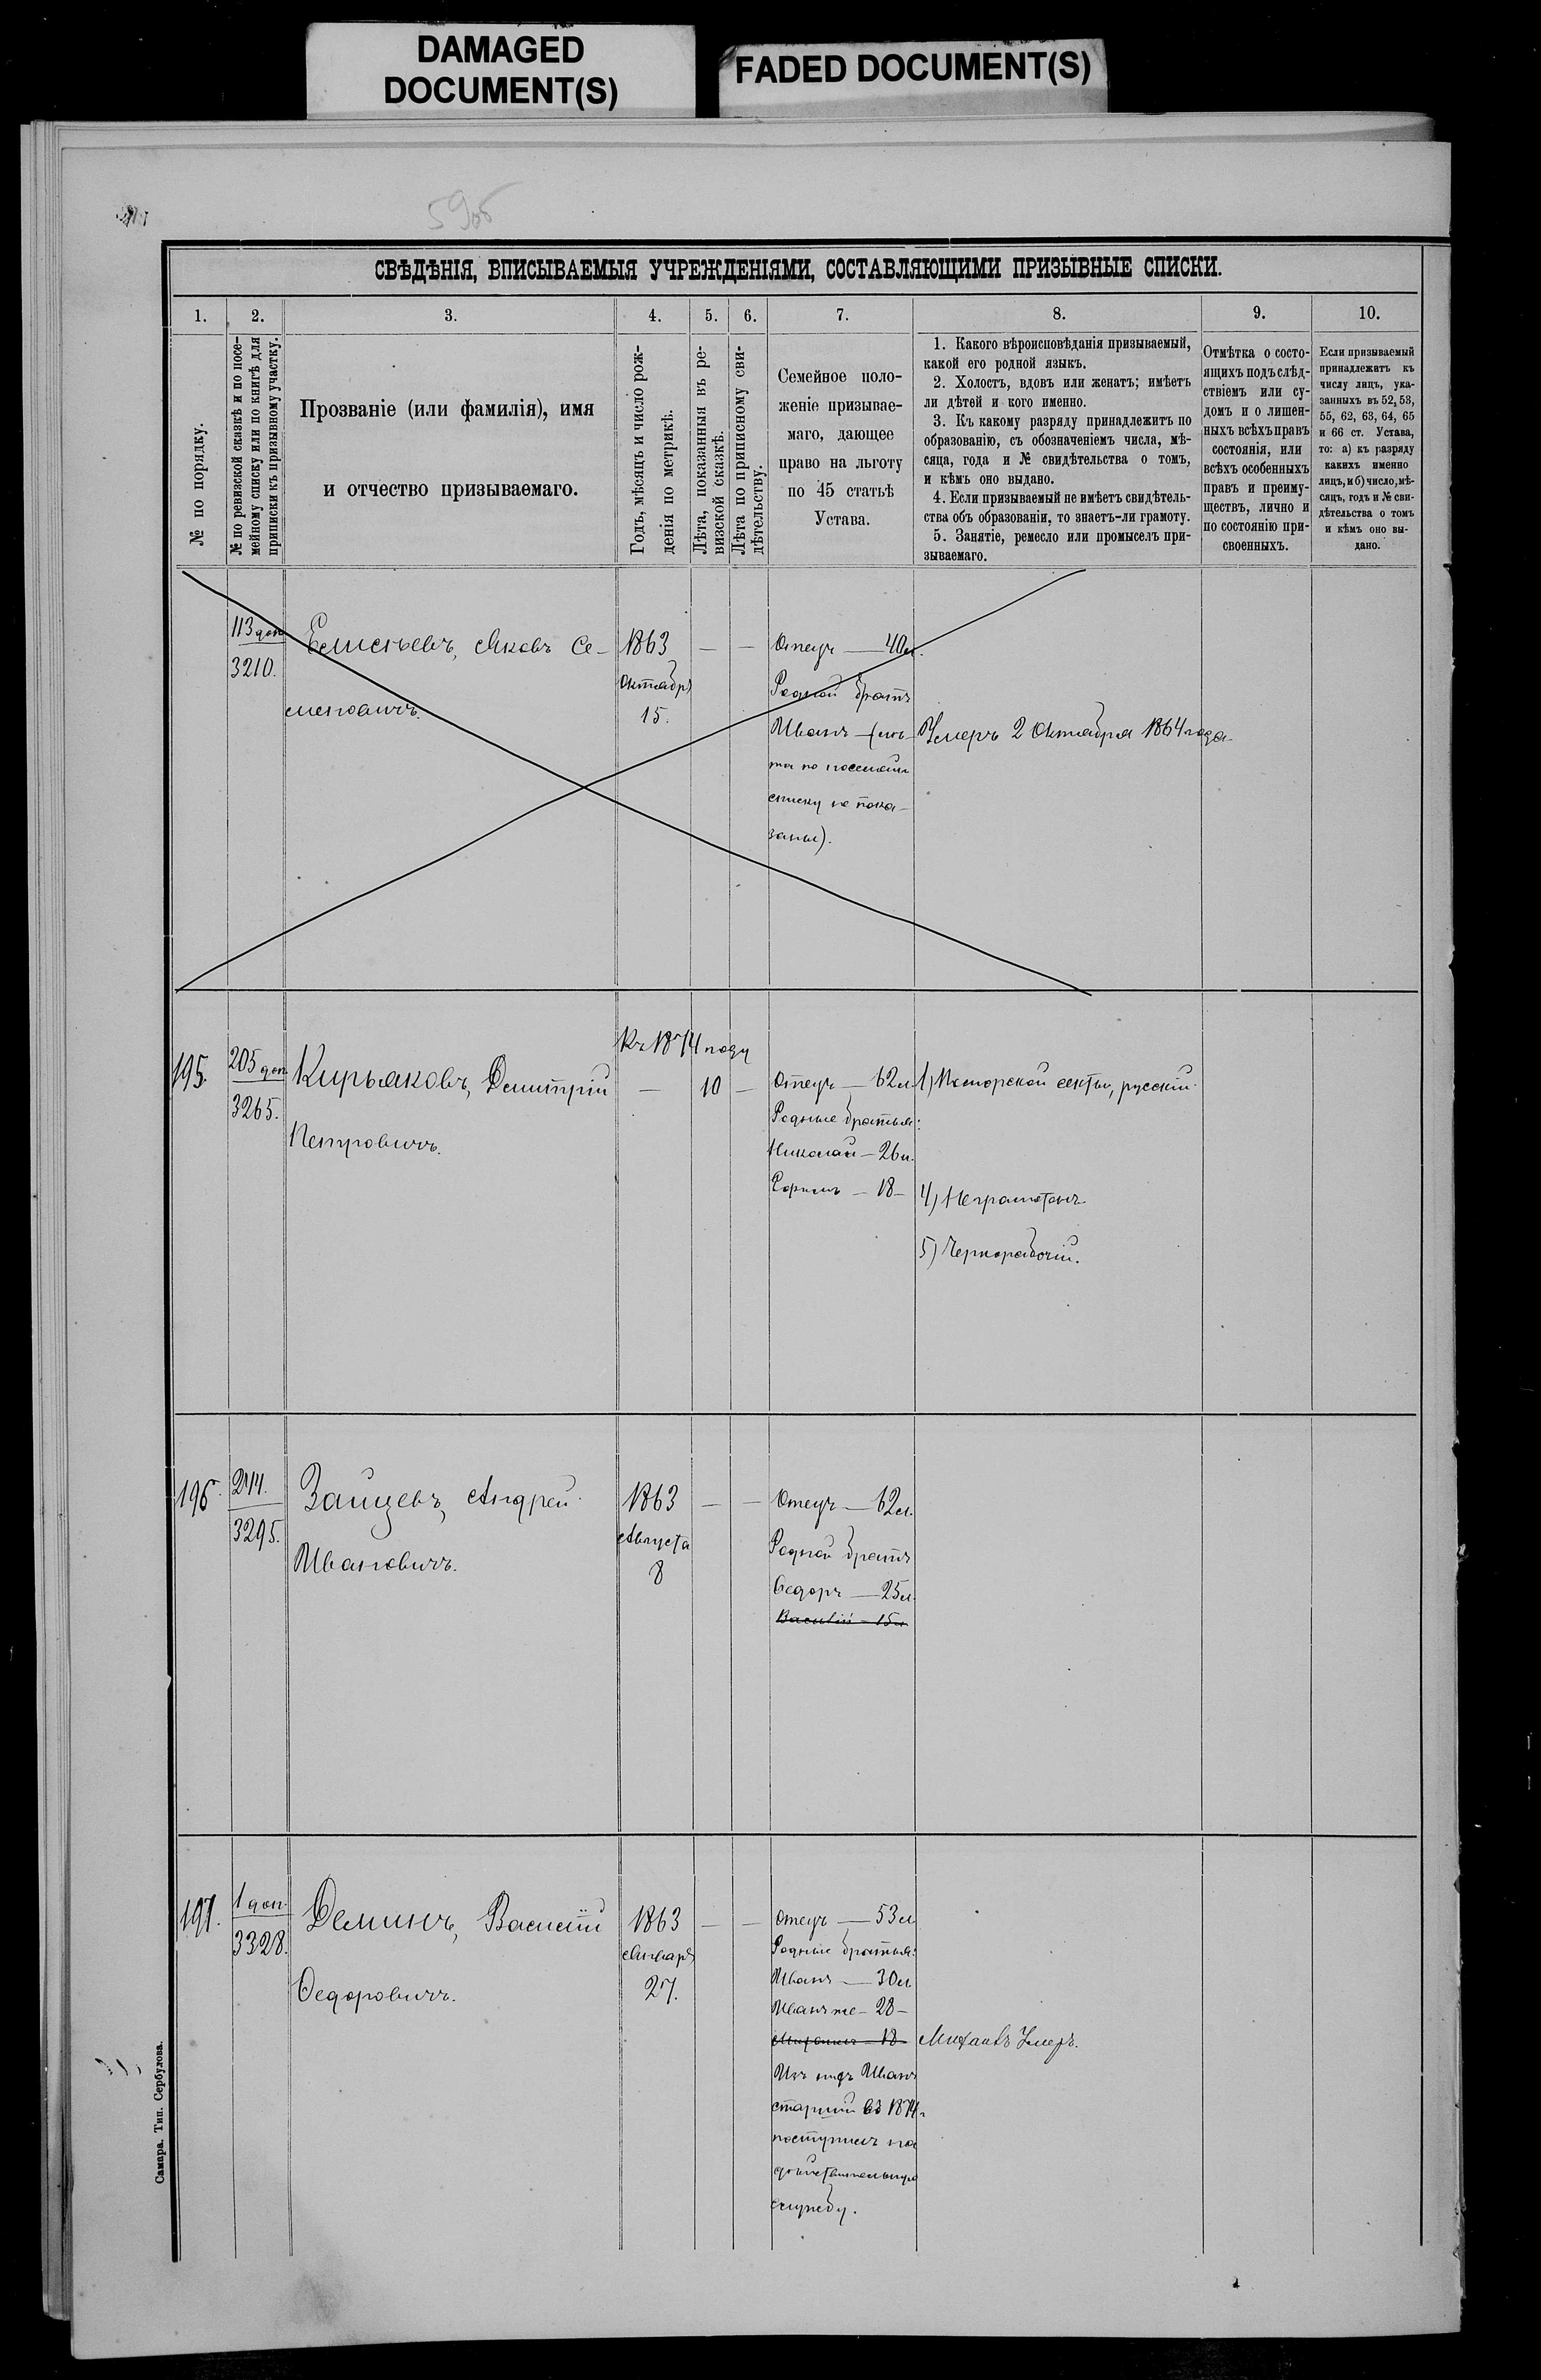 DAMAGED
DOCUMENT(S)
FADED DOCUMENT(S)
59об
СВѢДѢНІЯ, ВПИСЫВАЕМЫЯ УЧРЕЖДЕНІЯМИ, СОСТАВЛЯЮЩИМИ ПРИЗЫВНЫЕ СПИСКИ.
1.
2.
3.
4.
5.
6.
7.
8.
9.
10.
№ по порядку.
№ по ревизской сказкѣ и по посе-
мейному списку или по книгѣ для
приписки къ призывному участку.
Прозваніе (или фамилія), имя
и отчество призываемаго.
Годъ, мѣсяцъ и число рож-
денія по метрикѣ.
Лѣта, показанныя въ ре-
визской сказкѣ.
Лѣта по приписному сви-
дѣтельству.
Семейное поло-
женіе призывае-
маго, дающее
право на льготу
по 45 статьѣ
Устава.
1. Какого вѣроисповѣданія призываемый,
какой его родной языкъ.
2. Холостъ, вдовъ или женатъ; имѣетъ
ли дѣтей и кого именно.
3. Къ какому разряду принадлежитъ по
образованію, съ обозначеніемъ числа, мѣ-
сяца, года и № свидѣтельства о томъ,
и кѣмъ оно выдано.
4. Если призываемый не имѣетъ свидѣтель-
ства объ образованіи, то знаетъ-ли грамоту.
5. Занятіе, ремесло или промыселъ при-
зываемаго.
Отмѣтка о состо-
ящихъ подъ слѣд-
ствіемъ или су-
домъ и о лишен-
ныхъ всѣхъ правъ
состоянія, или
всѣхъ особенныхъ
правъ и преиму-
ществъ, лично и
по состоянію при-
своенныхъ.
Если призываемый
принадлежитъ къ
числу лицъ, ука-
занныхъ въ 52, 53,
55, 62, 63, 64, 65
и 66 ст. Устава,
то: а) къ разряду
какихъ именно
лицъ, и б) число, мѣ-
сяцъ, годъ и № сви-
дѣтельства о томъ
и кѣмъ оно вы-
дано.
113 доп
3210.
Елисѣевъ, Яковъ Се-
меновичъ.
1863
Октября
15.
—
—
Отецъ — 40 л.
Родной братъ
Иванъ — (лѣ-
та по посемейн
списку не пока-
заны).
Умеръ 2 Октября 1864 года
195.
205 доп
3265.
Кирьяковъ, Димитрій
Петровичъ.
Къ 1874 году
—
10
—
Отецъ — 62 л
Родные братья:
Николай — 26 л.
— 18 —
1) Поморской секты, русскій.
4) Неграмотенъ.
5) Чернорабочій.
196.
244.
3295.
Зайцевъ, Андрей
Ивановичъ.
1863
Августа
8
—
—
Отецъ — 62 л.
Родной братъ
Ѳедоръ — 25 л.
Василій — 15 л
197.
1 доп
3328.
Деминъ, Василій
Ѳедоровичъ.
1863
Января
27.
—
—
Отецъ — 53 л
Родные братья:
Иванъ — 30 л
Иванъ же — 28 —
Михаилъ — 18 —
Изъ нихъ Иванъ
старшій въ 1874 г
поступилъ на
дѣйствительную
службу.
Михаилъ Умеръ.
Самара. Тип. Сербулова.